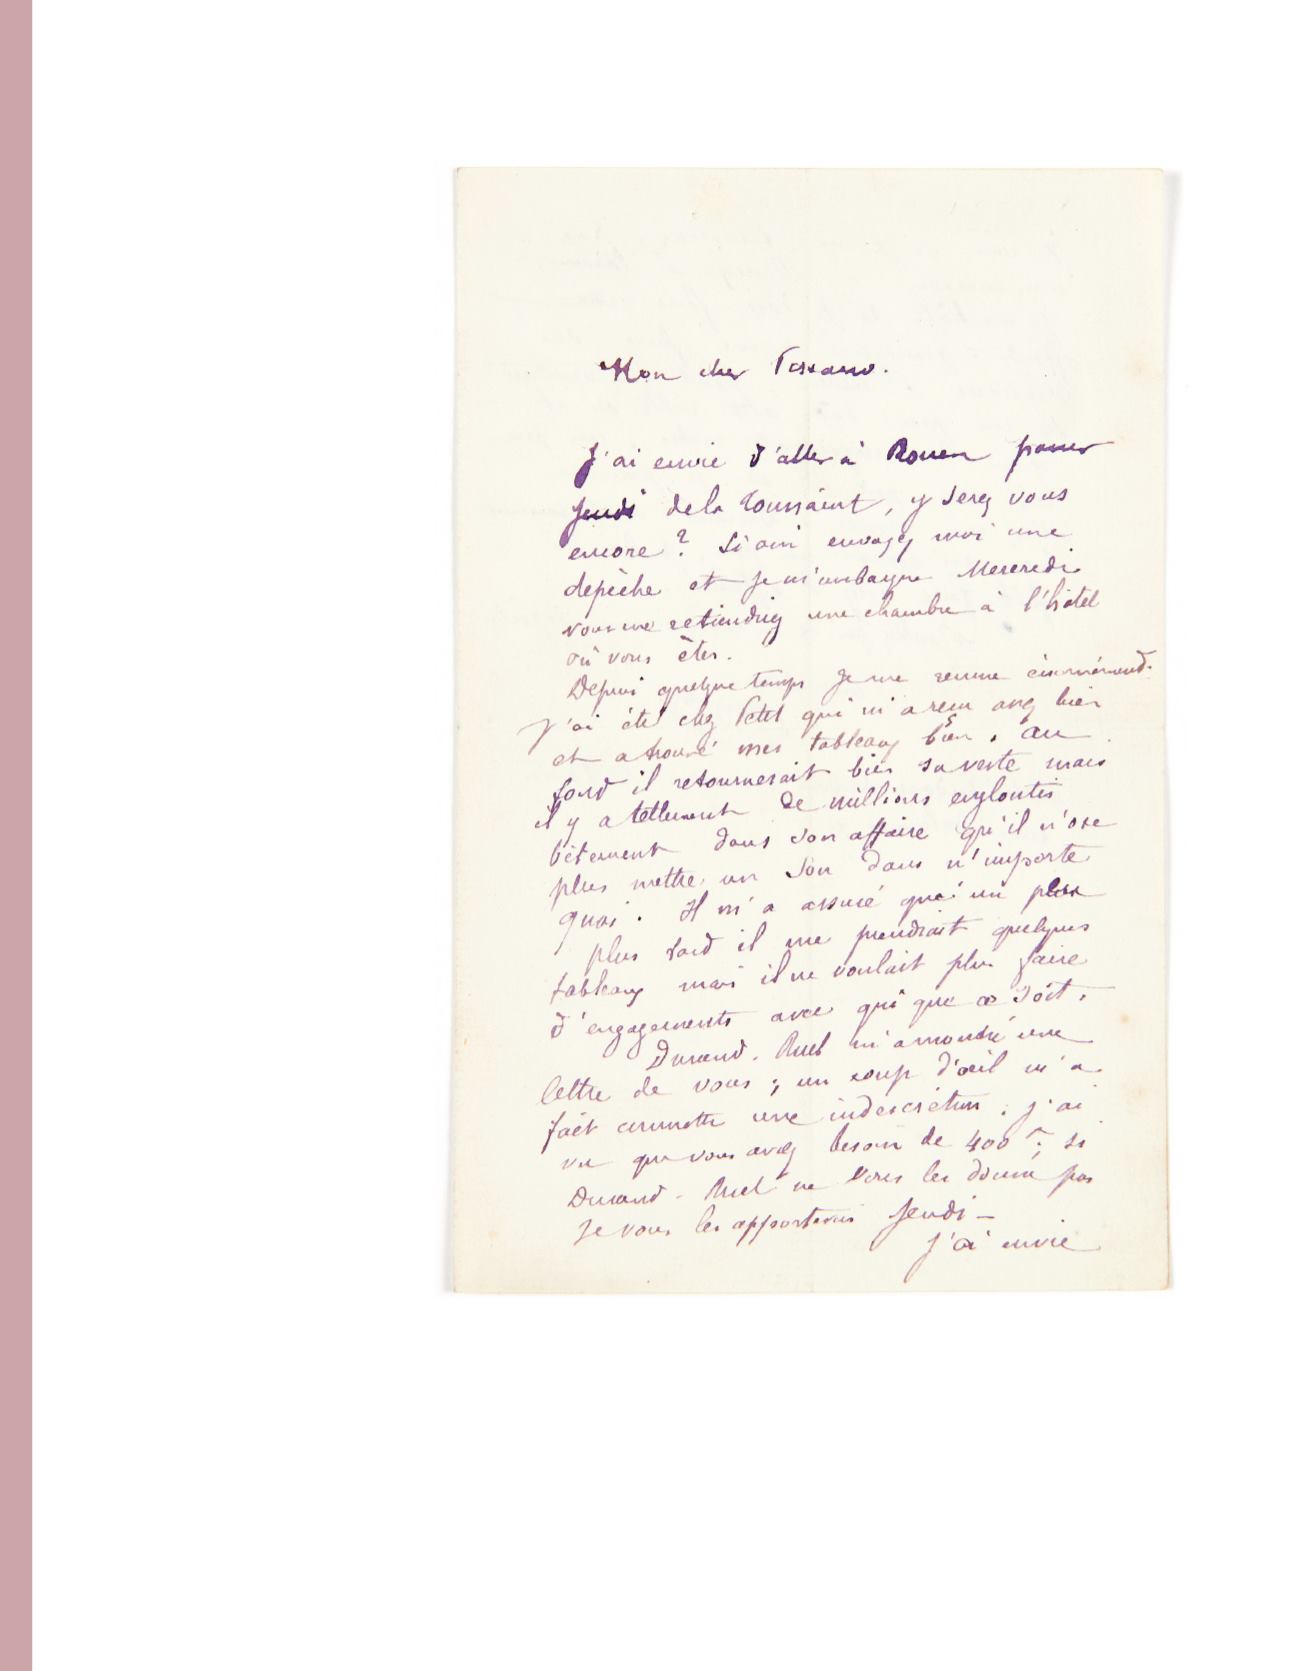 Mon cher Pissarro.
J'ai envie d'aller à Rouen passer
Jeudi de la Toussaint, y serez vous
encore ? Si oui envoyez moi une
depèche et je m'embarque Mercredi
vous me retiendriez une chambre à l'hôtel
où vous êtes.
Depuis quelque temps je me remue énormément.
J'ai été chez Petit qui m'a reçu assez bien
et a trouvé mes tableaux bien. Au
fond il retournerait bien sa veste mais
il y a tellement de millions engloutis
bètement dans son affaire qu'il n'ose
plus mettre un sou dans n'importe
quoi. Il m'a assuré que un peu
plus tard il me prendrait quelques
tableaux mais il ne voulait plus faire
d'engagements avec qui que ce soit.
Durand-Ruel m'a montré une
lettre de vous ; un coup d'œil m'a
fait commettre une indescrétion. j'ai
vu que vous avez besoin de 400 f ; si
Durand-Ruel ne vous les donne pas
je vous les apporterai Jeudi —
J'ai envie